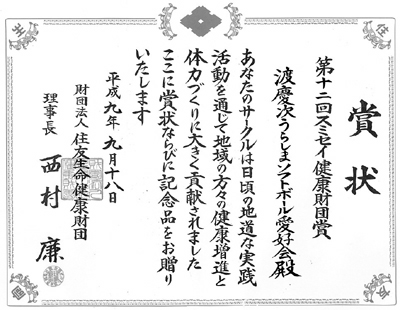 賞状
第十二回スミセイ健康財団賞
渡慶次うらしまソフトボール愛好会殿
あなたのサークルは日頃の地道な実践
活動を通じて地域の方々の健康増進と
体力づくりに大きく貢献されました
ここに賞状ならびに記念品をお贈り
いたします
平成九年九月十八日
財団法人住友生命健康財団
理事長 西村 廉